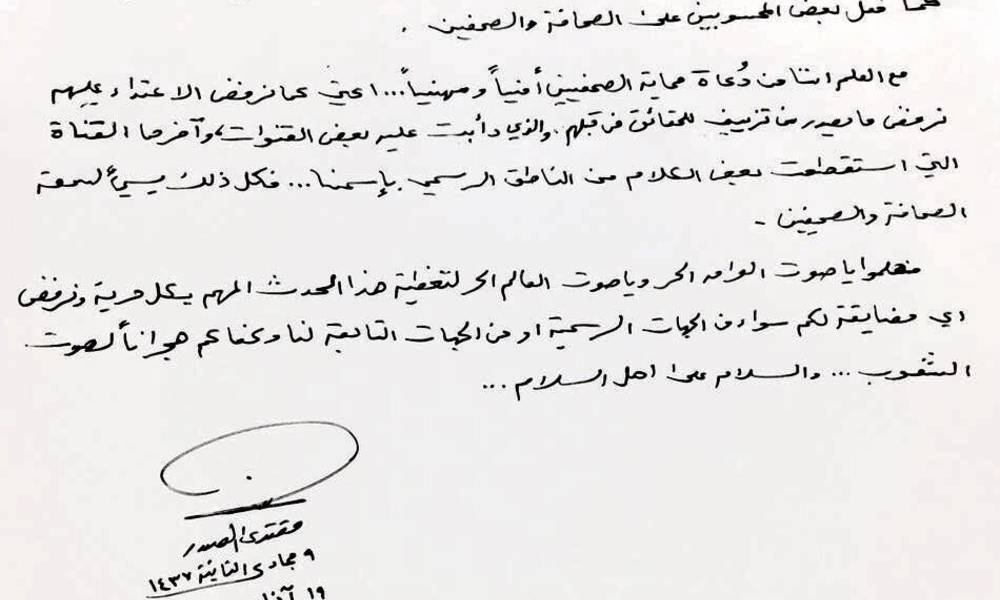 كما فعل بعض المحسوبين على الصحافة والصحفيين .
مع العلم اننا من دُعاة حماية الصحفيين أمنياً ومهنياً... اعني كما نرفض الاعتداء عليهم
نرفض ما يصدر من تزييف للحقائق من قبلهم. والذي دأبت عليه بعض القنوات، وآخرها القناة
التي استقطعت بعض الكلام من الناطق الرسمي بإسمنا... فكل ذلك يسيءُ لسمعة
الصحافة والصحفيين .
فهلموا يا صوت العراق الحر ويا صوت العالم الحر لتغطية هذا الحدث المهم بكل حرية ونرفض
اي مضايقة لكم سواء من الجهات الرسمية او من الجهات التابعة لنا وكفاكم هجراناً لصوت
الشعوب ... والسلام على اهل السلام ...
مقتدى الصدر
٩ جمادى الثانية ١٤٣٧
١٩ آذار